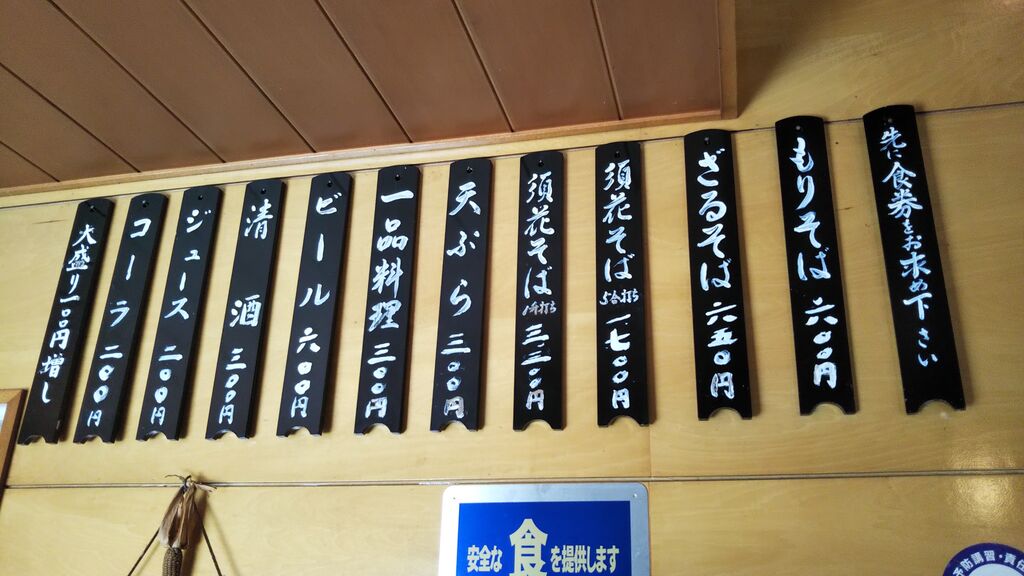 先に食券をお求め下さい
もりそば 六〇〇円
ざるそば 六五〇円
須花そば 5合打ち 一七〇〇円
須花そば 1升打ち 三三〇〇円
天ぷら 三〇〇円
一品料理 三〇〇円
ビール 六〇〇円
清酒 三〇〇円
ジュース 二〇〇円
コーラ 二〇〇円
大盛り一〇〇円増し
安全な食を提供します
予防講習・責任